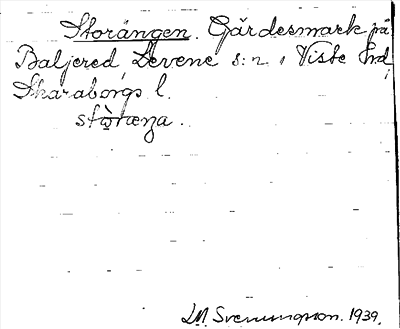 Storängen. Gärdesmark på
Baljered Levene s:n, Viste hrd,
Skaraborgs l.
stò̱ræŋa.
LM. Svenungsson. 1939.